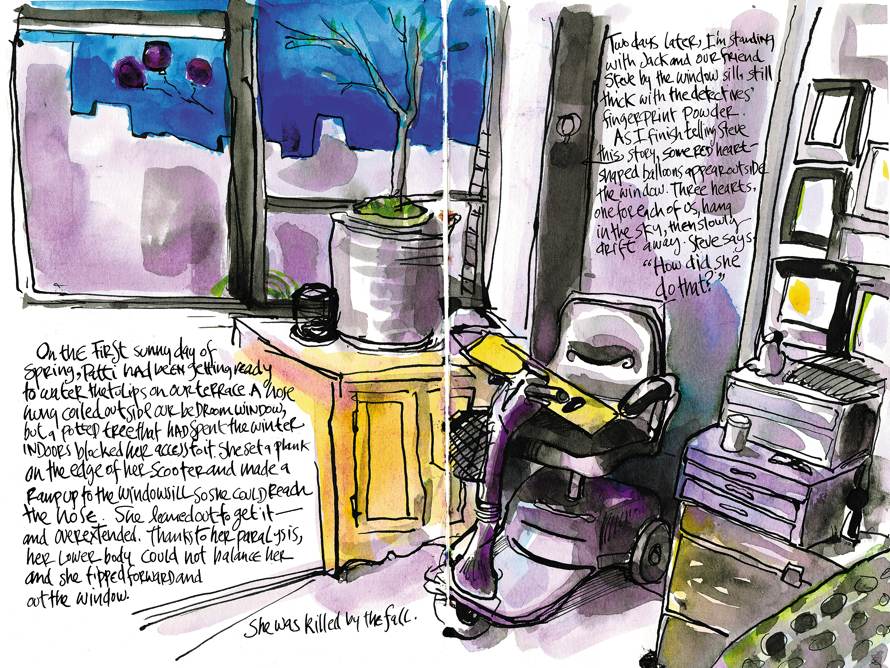 On the first sunny day of
spring, Patti had been getting ready
to water the tulips on our terrace. A hose
hung coiled outside our bedroom window,
but a potted tree that had spent the winter
indoors blocked her access to it. She set a plank
on the edge of her scooter and made a
ramp up to the windowsill so she could reach
the hose. She leaned out to get it —
and overextended. Thanks to her paralysis,
her lower body could not balance her
and she tipped forward and
out the window.
She was killed by the fall.
Two days later, I'm standing
with Jack and our friend
Steve by the window sill, still
thick with the detectives'
fingerprint powder.
As I finish telling Steve
this story, some red heart-
shaped balloons appear outside
the window. Three hearts,
one for each of us, hang
in the sky, then slowly
drift away. Steve says,
"How did she
do that?"